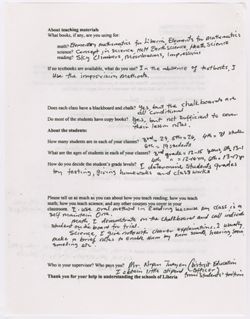 About teaching materials
What books, if any, are you using for:
math? Elementary mathematics for Liberia Elements for Mathematics
science? Concept in Science Earth Science, Health Science
reading? Sky Climbers, Moonbeams, Impressions
If no textbooks are available, what do you use? In the absence of textbooks, I
Use the improvision methods.
Does each class have a blackboard and chalk? Yes but the chalkboards are
old Conditional
Do most of the students have copy books? Yes, but not sufficient to cover
their lesson notes.
About the students:
How many students are in each of your classes? 3rd, 29, 5th = 26, 4th = 31 students
6th = 19 students
What are the ages of students in each of your classes? 3rd grades = 12-15 years, 5th 13-1
How do you decide the student's grade levels? I determine students grades
by testing, giving homeworks and class works
Please tell us as much as you can about how you teach reading, how you teach
math; how you teach science, and any other compass you enjoy in your
classroom. I use oral method in Reading because my class is a
self maintain one.
Math, I demonstrate on the chalkboard and call individ
student on the board for trial.
Science, I give notework observe explanations. I usually
make a brief notes to enable them by term sounds hearing seeing
something etc.
Who is your supervisor? Who pays you? Mr. Nyan Tuayen (District Education
I obtain little stipend Officer)
Thank you for your help in understanding the schools of Liberia from students' tuition